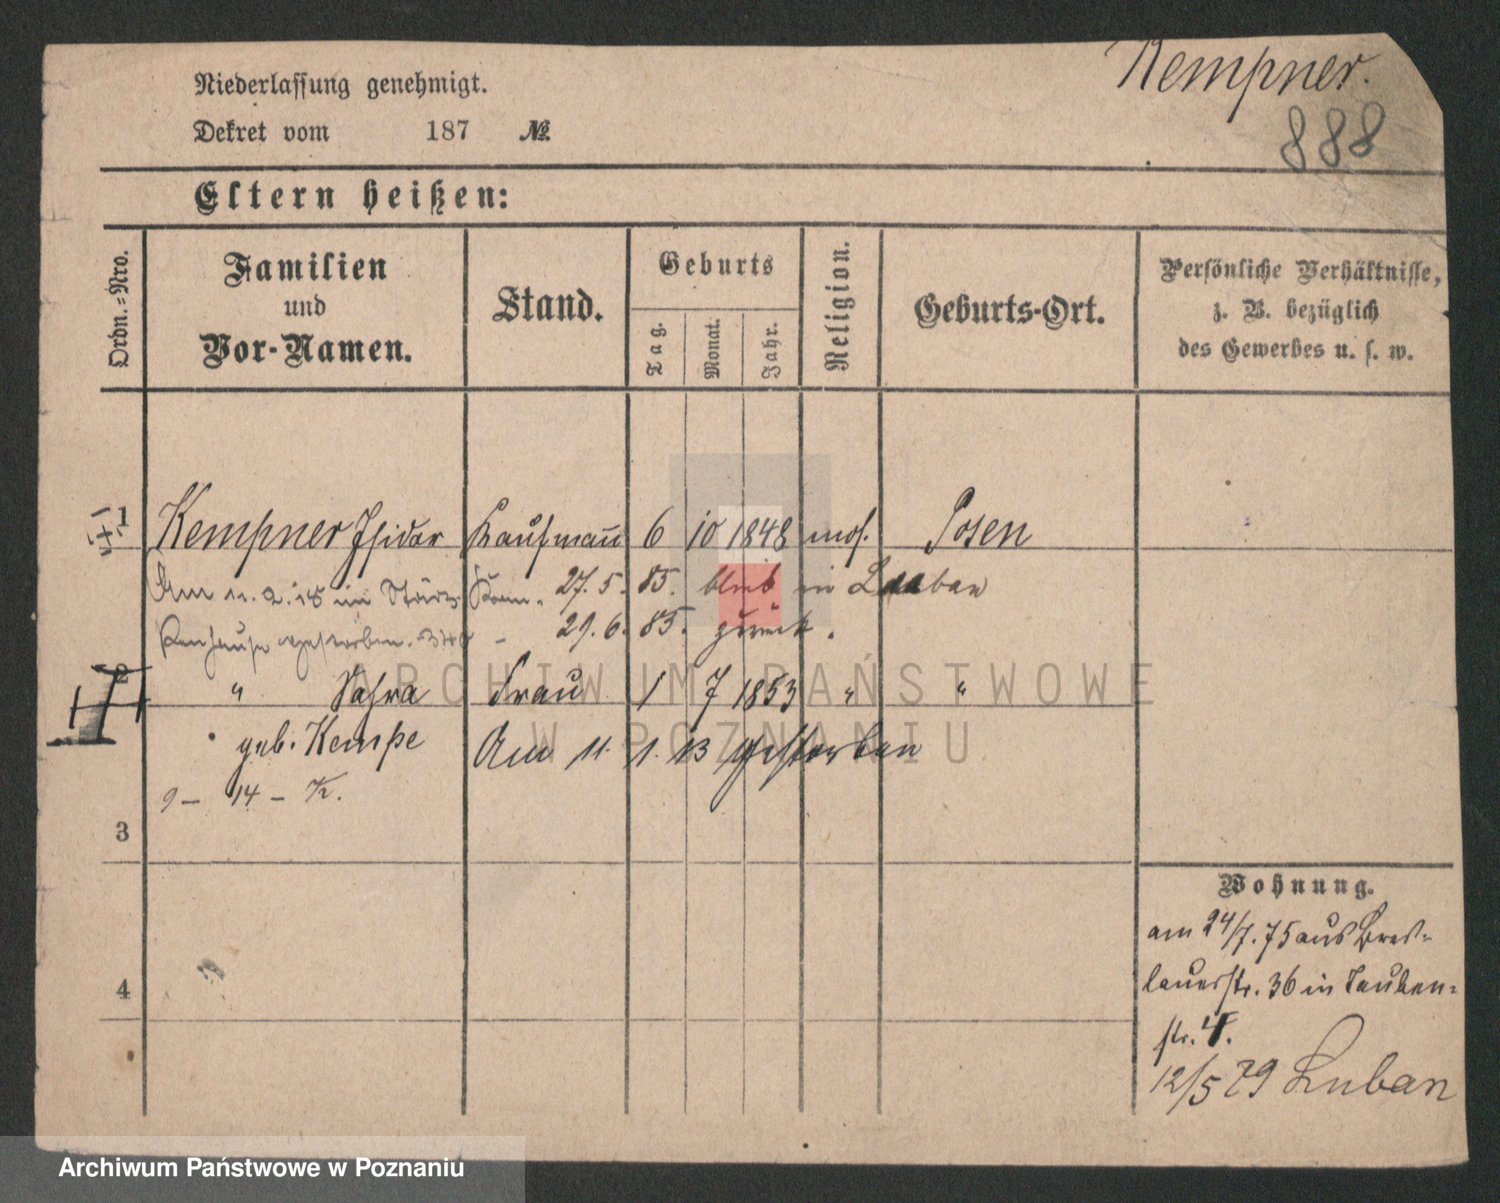 Kempner.
888
Niederlassung genehmigt.
Dekret vom 187 №
Eltern heißen:
Ordn.-Nro.
Familien und Vor-Namen.
Stand.
Geburts
Tag.
Monat.
Jahr.
Religion.
Geburts-Ort.
Persönliche Verhältnisse,
z. B. bezüglich
des Gewerbes u. s. w.
1 Kempner Isidor Kaufmann 6 10 1848 mos. Posen
Am 11.2.18 im 27. 5. 85. blieb in Luban
gestorben. 29. 6. 85. zurück.
2 " Sahra Frau 1 7 1853 " "
geb. Kempe Am 11. 1. 13 gestorben
9 - 14 -
3
4
Wohnung.
am 24/7. 75 aus Bres-
lauerstr. 36 in Tauben-
str. 4.
12/5 79 Luban
ARCHIWUM PAŃSTWOWE
W POZNANIU
Archiwum Państwowe w Poznaniu